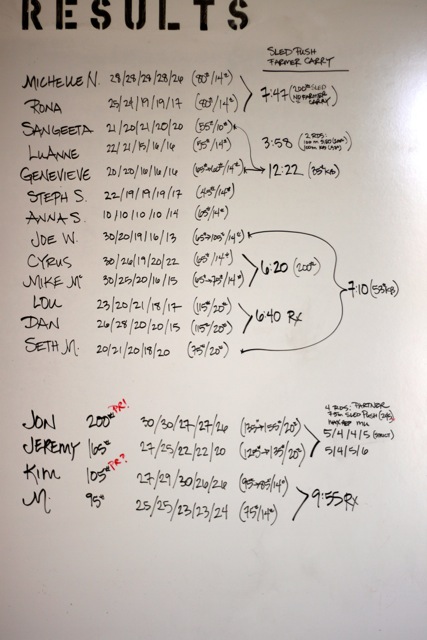 RESULTS
SLED PUSH
FARMER CARRY
MICHELLE N. 28/28/28/28/26 (80#/14#)
RONA 25/24/19/19/17 (80#/14#) 7:47 (200# SLED NO FARMER CARRY)
SANGEETA 21/20/21/20/20 (55#/10#)
LUANNE 22/21/15/16/16 (55#/14#) 3:58 (2 RDS:
GENEVIEVE 20/20/16/16/16 (65#→60#/14#) 12:22 (35#KB)
STEPH S. 22/19/19/19/17 (45#/14#)
ANNA S. 10/10/10/10/14 (65#/14#)
JOE W. 30/20/19/16/13 (65#→105#/14#)
CYRUS 30/26/19/20/22 (65#/14#) 6:20 (200#)
MIKE Mc 30/25/20/16/15 (65#→75#/14#) 7:10 (53#KB)
LOU 23/20/21/18/17 (115#/20#)
DAN 26/28/20/20/15 (115#/20#) 6:40 Rx
SETH M. 20/21/20/18/20 (75#/20#)
4 RDS: PARTNER
75m SLED PUSH
MAX REP MU
JON 200# PR! 30/30/27/27/26 (135#→155#/20#) 5/4/4/5 (STRICT)
JEREMY 165# 27/25/22/22/20 (125#→135#/20#) 5/4/5/6
KIM 105# PR? 27/29/30/26/26 (95#→85#/14#)
M. 95# 25/25/23/23/24 (75#/14#) 9:55 Rx